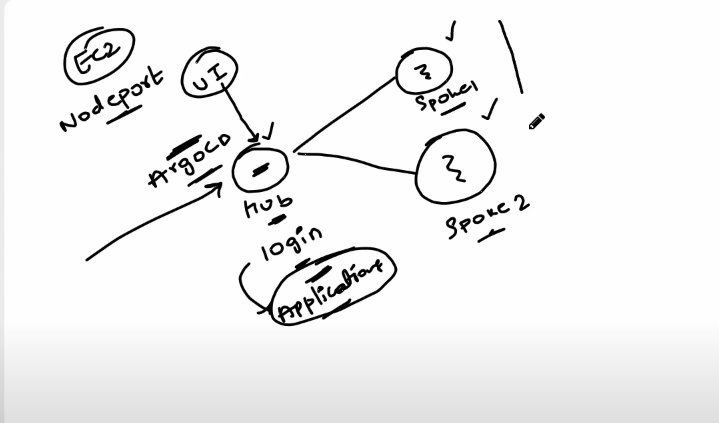 EC2
Nodeport
UI
ArgoCD
Hub
login
Applications
Spoke1
Spoke 2